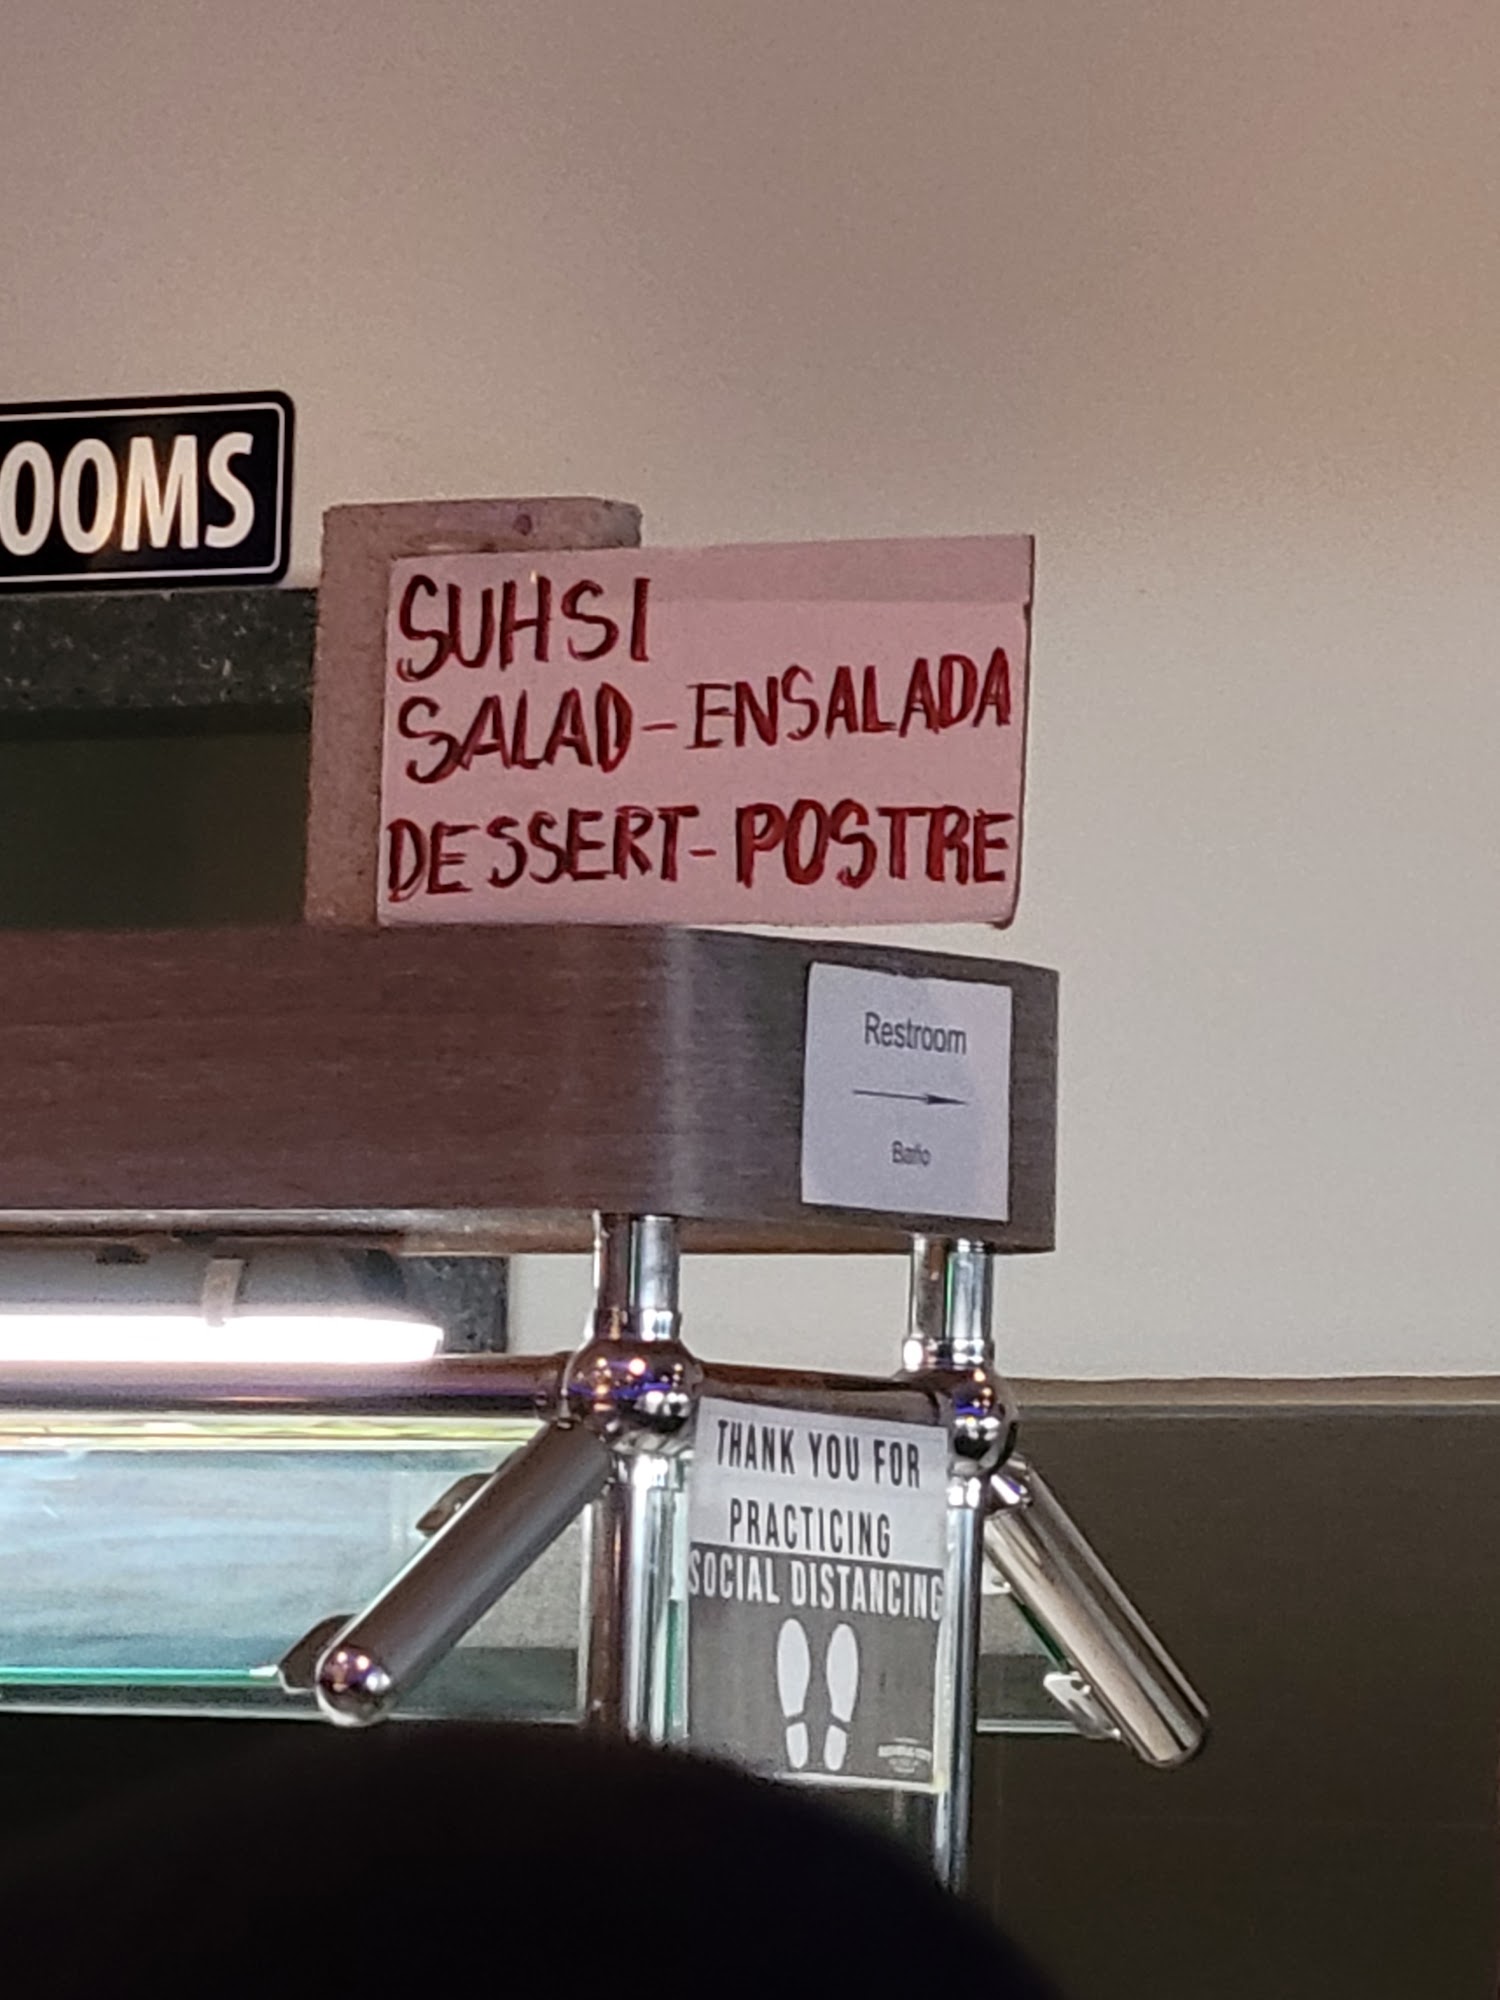 OOMS
SUHSI
SALAD-ENSALADA
DESSERT-POSTRE
Restroom
Baño
THANK YOU FOR
PRACTICING
SOCIAL DISTANCING